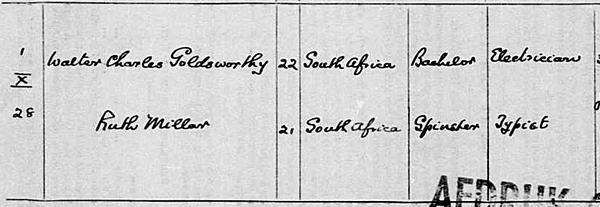 1 Walter Charles Goldsworthy 22 South Africa Bachelor Electrician
X
28 Ruth Millar 21 South Africa Spinster Typist
AFDRUK